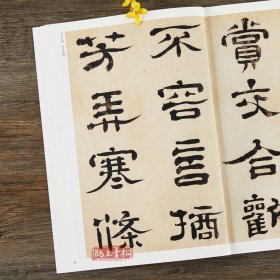 賞交合歡
不容言摘
芳弄寒條